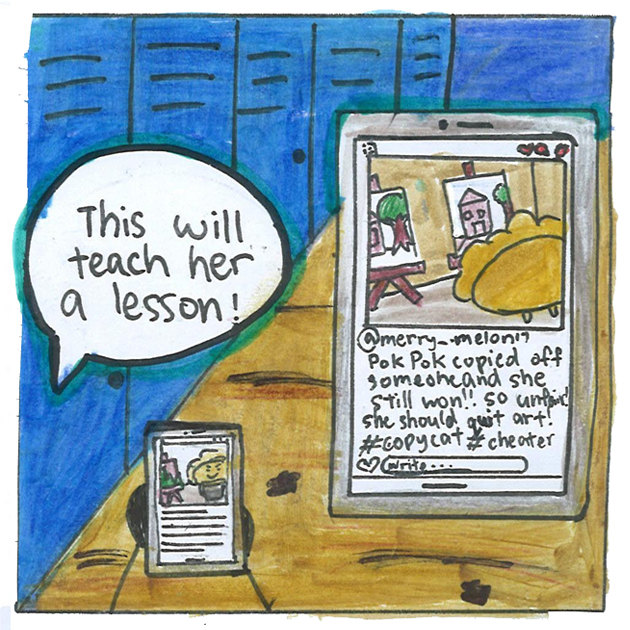 This will
teach her
a lesson!
@merry_.melon19
Pok Pok copied off
someone and she
still won!! so unfair!
she should quit art!
#copycat #cheater
write...